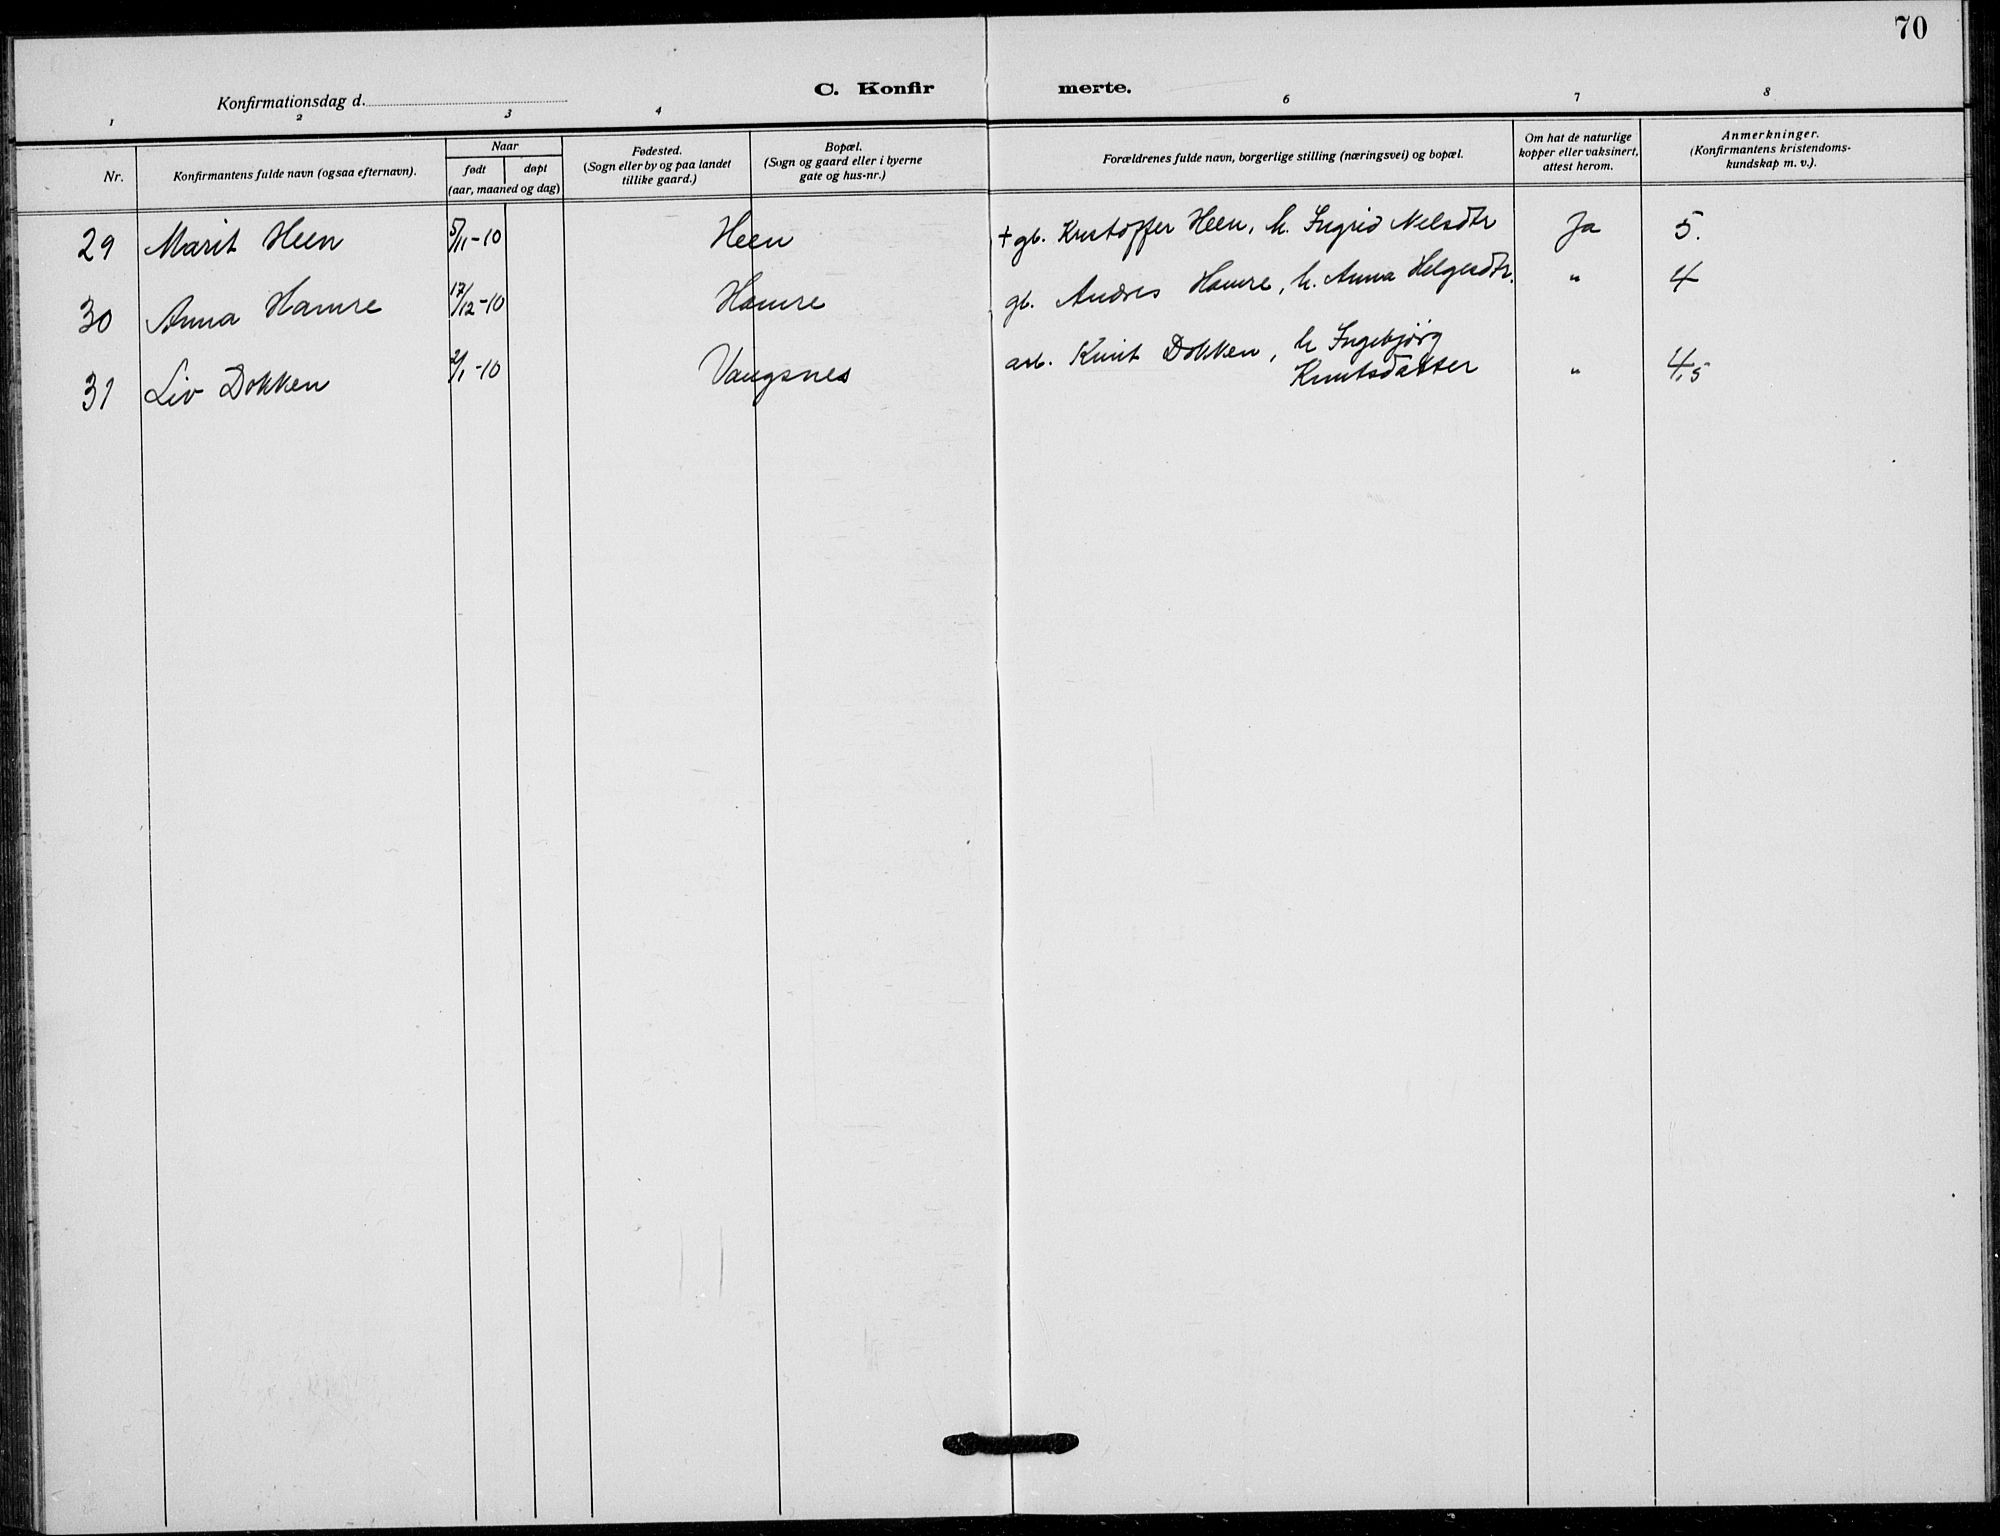 70
C. Konfirmerte.
Konfirmationsdag d.
1 2 3 4 6 7 8
Nr.
Konfirmantens fulde navn (ogsaa efternavn).
Naar
født døpt
(aar, maaned og dag)
Fødested.
(Sogn eller by og paa landet
tillike gaard.)
Bopæl.
(Sogn og gaard eller i byerne
gate og hus-nr.)
Forældrenes fulde navn, borgerlige stilling (næringsvei) og bopæl.
Om hat de naturlige
kopper eller vaksinert,
attest herom.
Anmerkninger.
(Konfirmantens kristendoms-
kundskap m. v.).
29 Marit Heen 5/11-10 Heen + gb. Kristoffer Heen, h. Ingrid Nelsdtr Ja 5.
30 Anna Hamre 17/12-10 Hamre gb. Andres Hamre, h. Anna Helgesdtr. " 4
31 Liv Dokken 2/1-10 Vangsnes arb. Knut Dokken, h Ingebjørg
Knutsdatter " 4,5